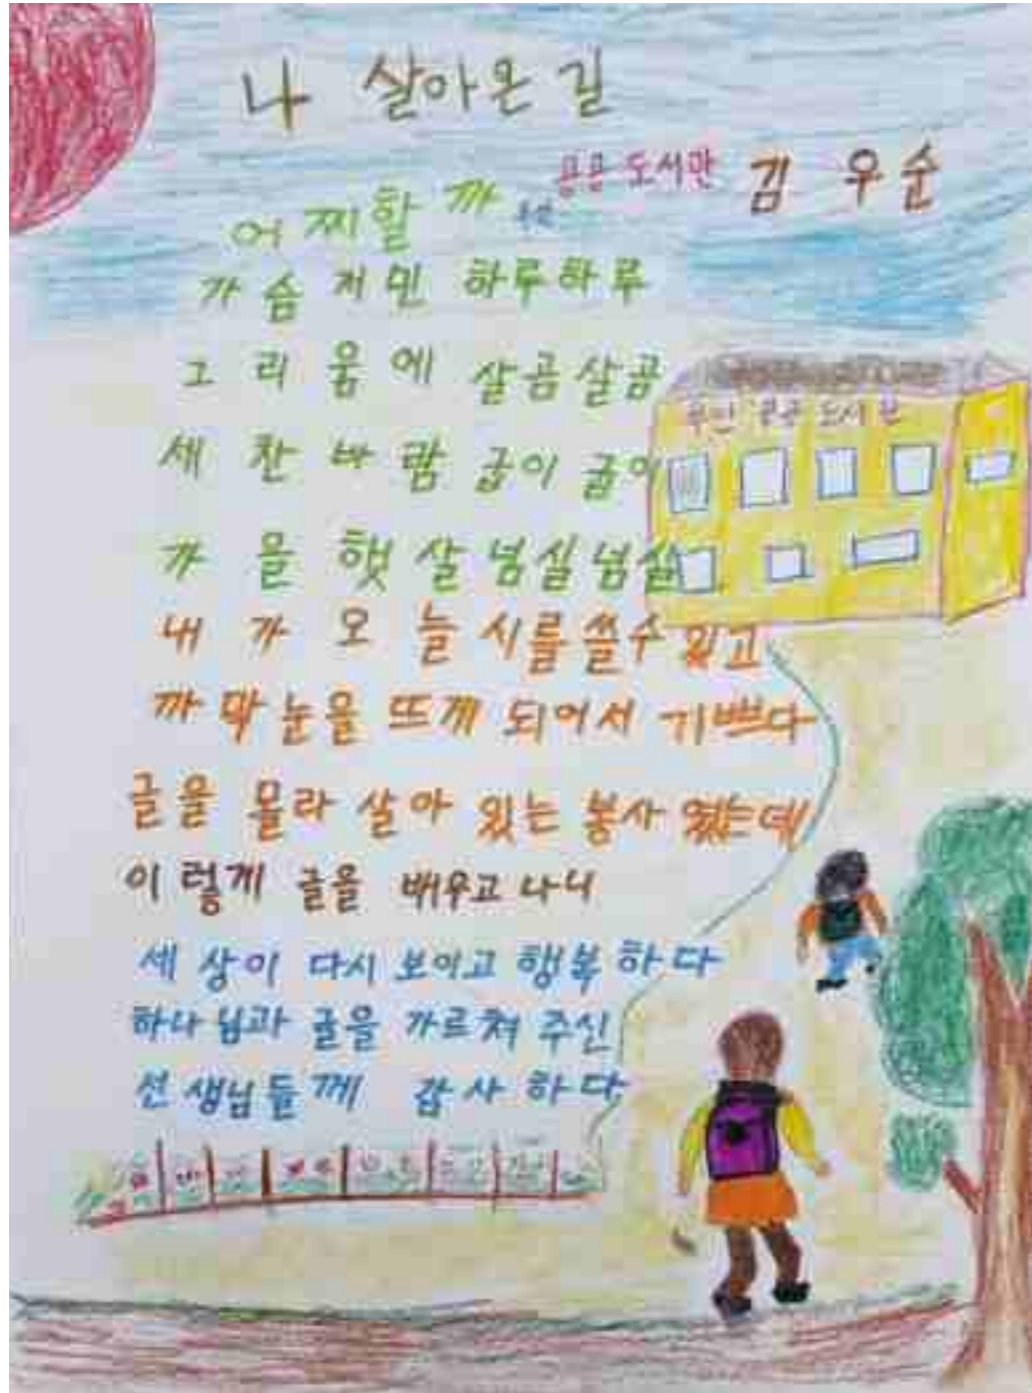 나 살아온 길
도서관 김 우 순
어 찌 할 까
가 슴 저 민 하루하루
그 리 움 에 살곰살곰
세 찬 바 람 굽이 굽이
가 을 햇 살 넘실넘실
도서관
내 가 오 늘 시를쓸수 있고
까 막 눈을 뜨게 되어서 기쁘다
글을 몰라 살아 있는 봉사 였는데
이 렇게 글을 배우고 나니
세 상이 다시 보이고 행복 하 다
하나 님과 글을 가르쳐 주신
선 생님들 께 감 사 하 다